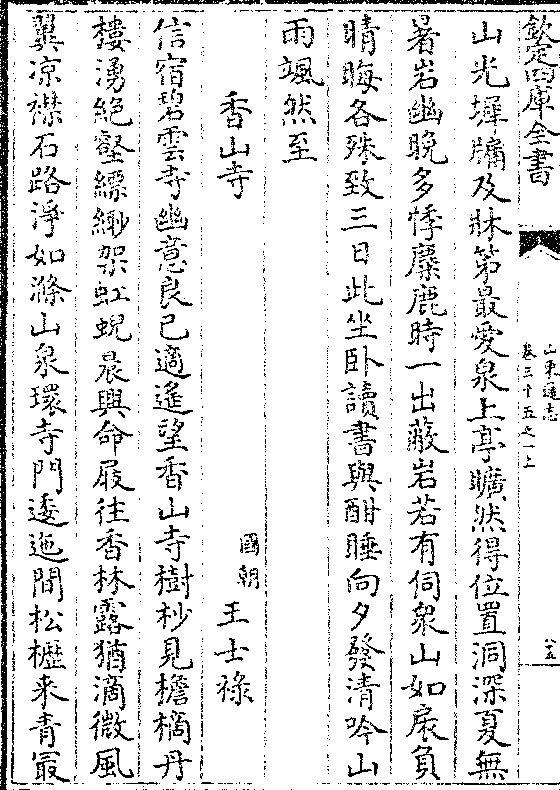 欽定四庫全書
山東通志
卷三十五之一上
山光墀牗及牀第最愛泉上亭曠然得位置洞深夏無
暑岩幽晚多悸麋鹿時一出蔽岩若有伺衆山如扆負
晴晦各殊致三日此坐卧讀書與酣睡向夕發清吟山
雨颯然至
香山寺
國朝王士祿
信宿碧雲寺幽意良已適遙望香山寺樹杪見檐樀丹
樓湧絕壑縹緲架虹蜺晨興命屐往香林露猶滴微風
翼凉襟石路淨如滌山泉環寺門逶迤間松櫪来青最